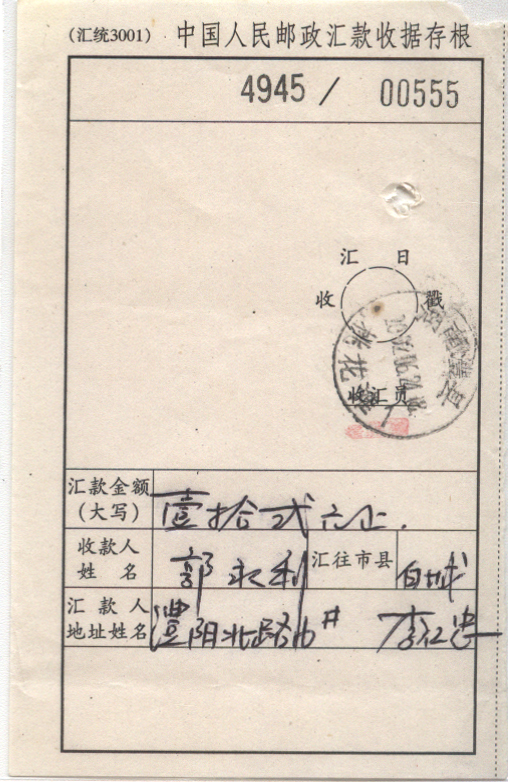 (汇统3001) 中国人民邮政汇款收据存根
4945 / 00555
汇 日
收 戳
收汇员
汇款金额 壹拾弍元正.
(大写)
收款人 郭永利 汇往市县 白城
姓名
汇款人 澧阳北路16# 李红忠
地址姓名